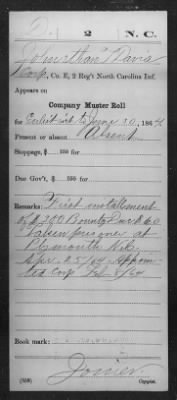 D. 2 N. C.
Johnathan Davis
Corp., Co. E, 2 Reg't North Carolina Inf.
Appears on
Company Muster Roll
for Enlistmt to June 30, 1864
Present or absent Absent
Stoppage, $ 100 for
Due Gov't, $ 100 for
Remarks: First installment
of $300 Bounty Due $60
Taken prisoner at
Plymouth N.C.
Apr. 25/64 Appoin
ted Corp Feb /64
Book mark:
(358) Copyist.